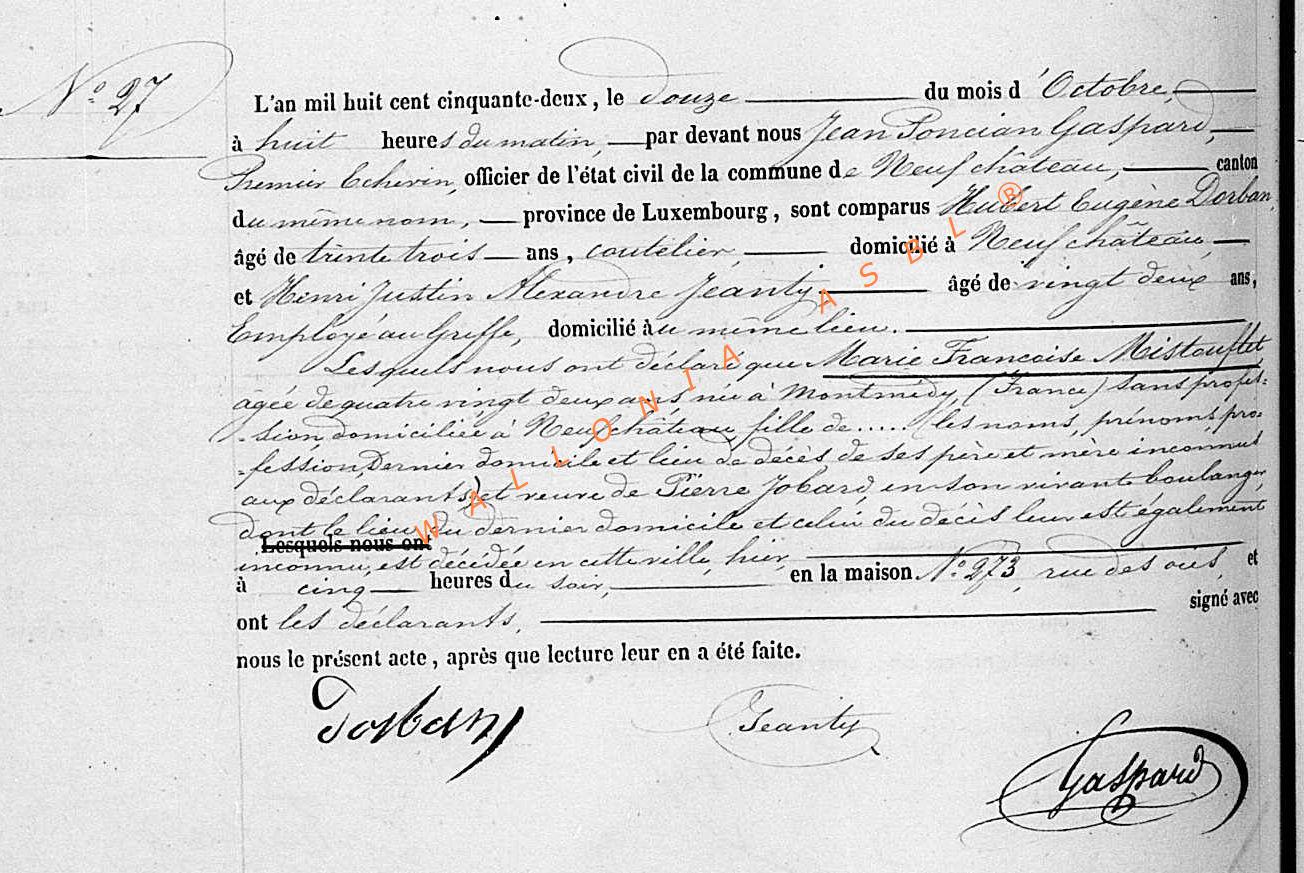 N.° 27
L'an mil huit cent cinquante-deux, le douze du mois d'Octobre,
à huit heures du matin, par devant nous Jean Poncian Gaspard,
Premier Echevin, officier de l'état civil de la commune de Neufchâteau, canton
du même nom, province de Luxembourg, sont comparus Hubert Eugène Dorban,
âgé de trente trois ans, coutélier, domicilié à Neufchâteau,
et Henri Justin Alexandre Jeanty âgé de vingt deux ans,
Employé au Greffe, domicilié au même lieu.
Lesquels nous ont déclaré que Marie Françoise Mistouflet,
agée de quatre vingt deux ans née à Montmédy, (France) sans profes-
-sion, domiciliée à Neufchâteau, fille de..... (les noms, prénoms, pro-
-fession, dernier domicile et lieu de décès de ses père et mère inconnus
aux déclarants) et veuve de Pierre Jobard, en son vivant boulanger,
dont le lieu du dernier domicile et celui du décès leur est également
Lesquels nous ont
inconnu, est décédée en cette ville, hier,
à cinq heures du soir, en la maison N.° 273, rue des oies, et
ont les déclarants, signé avec
nous le présent acte, après que lecture leur en a été faite.
Dorban Jeanty
Gaspard
WALLONIA ASBL ®